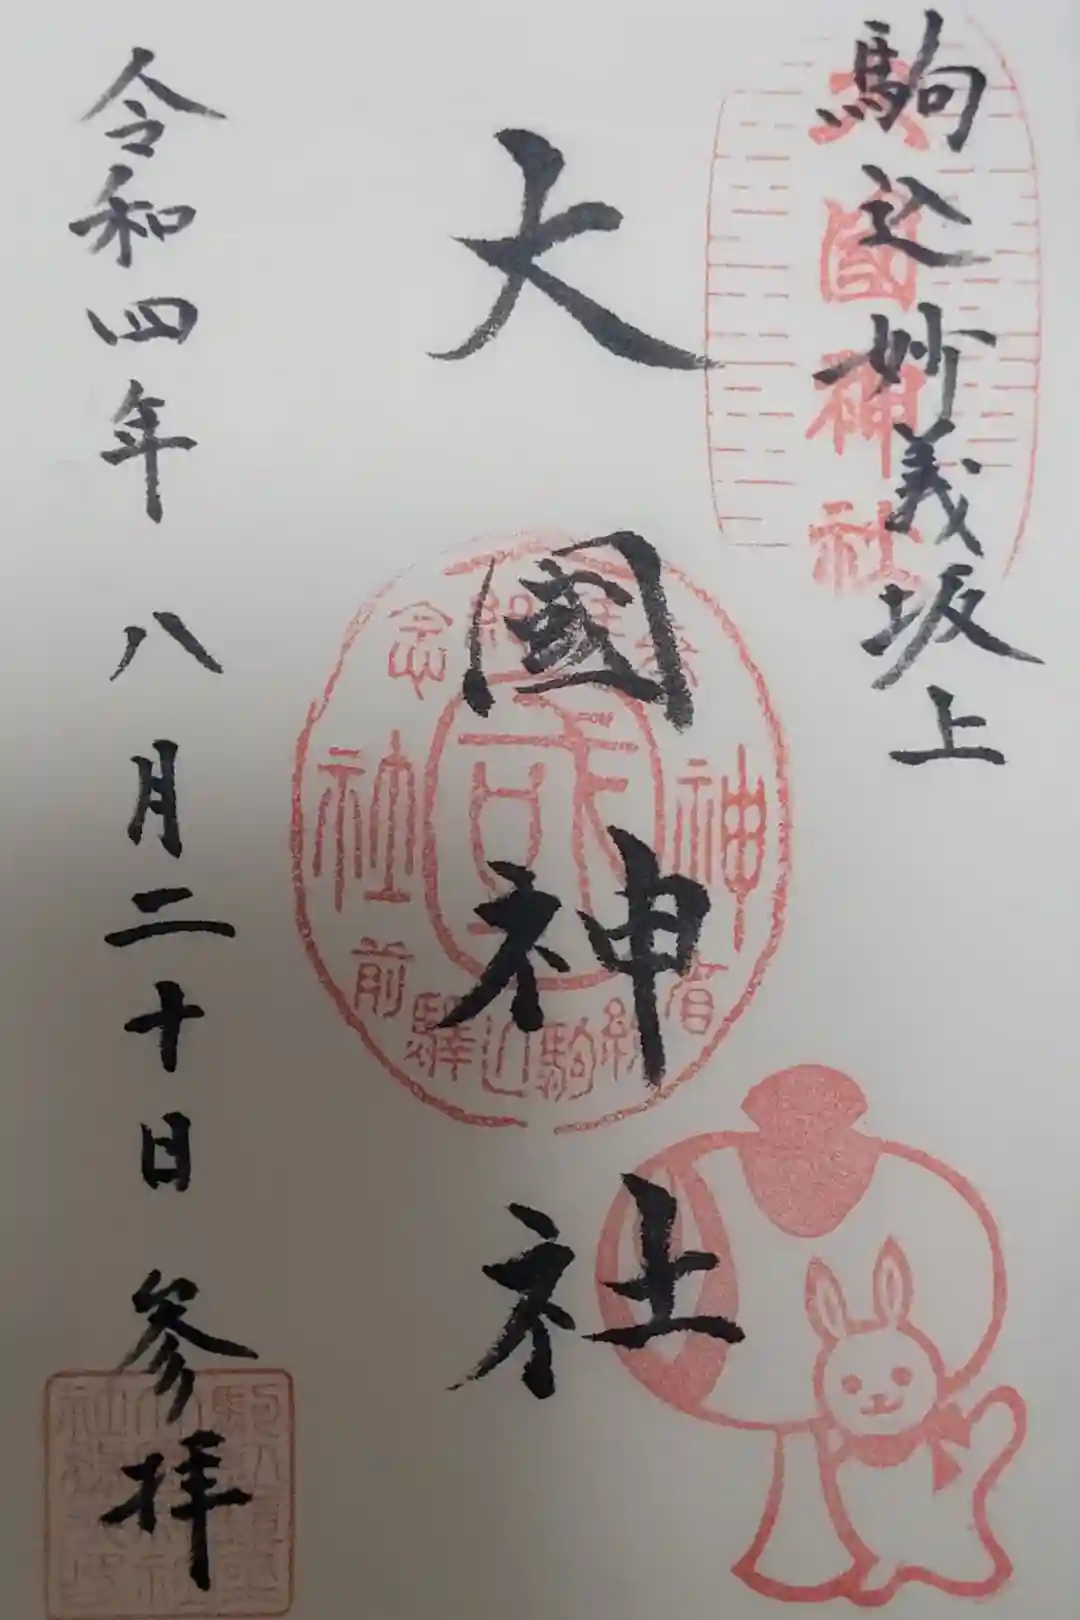 駒込妙義坂上
大國神社
大國神社
令和四年八月二十日参拝
神
社
念
前
驛
駒